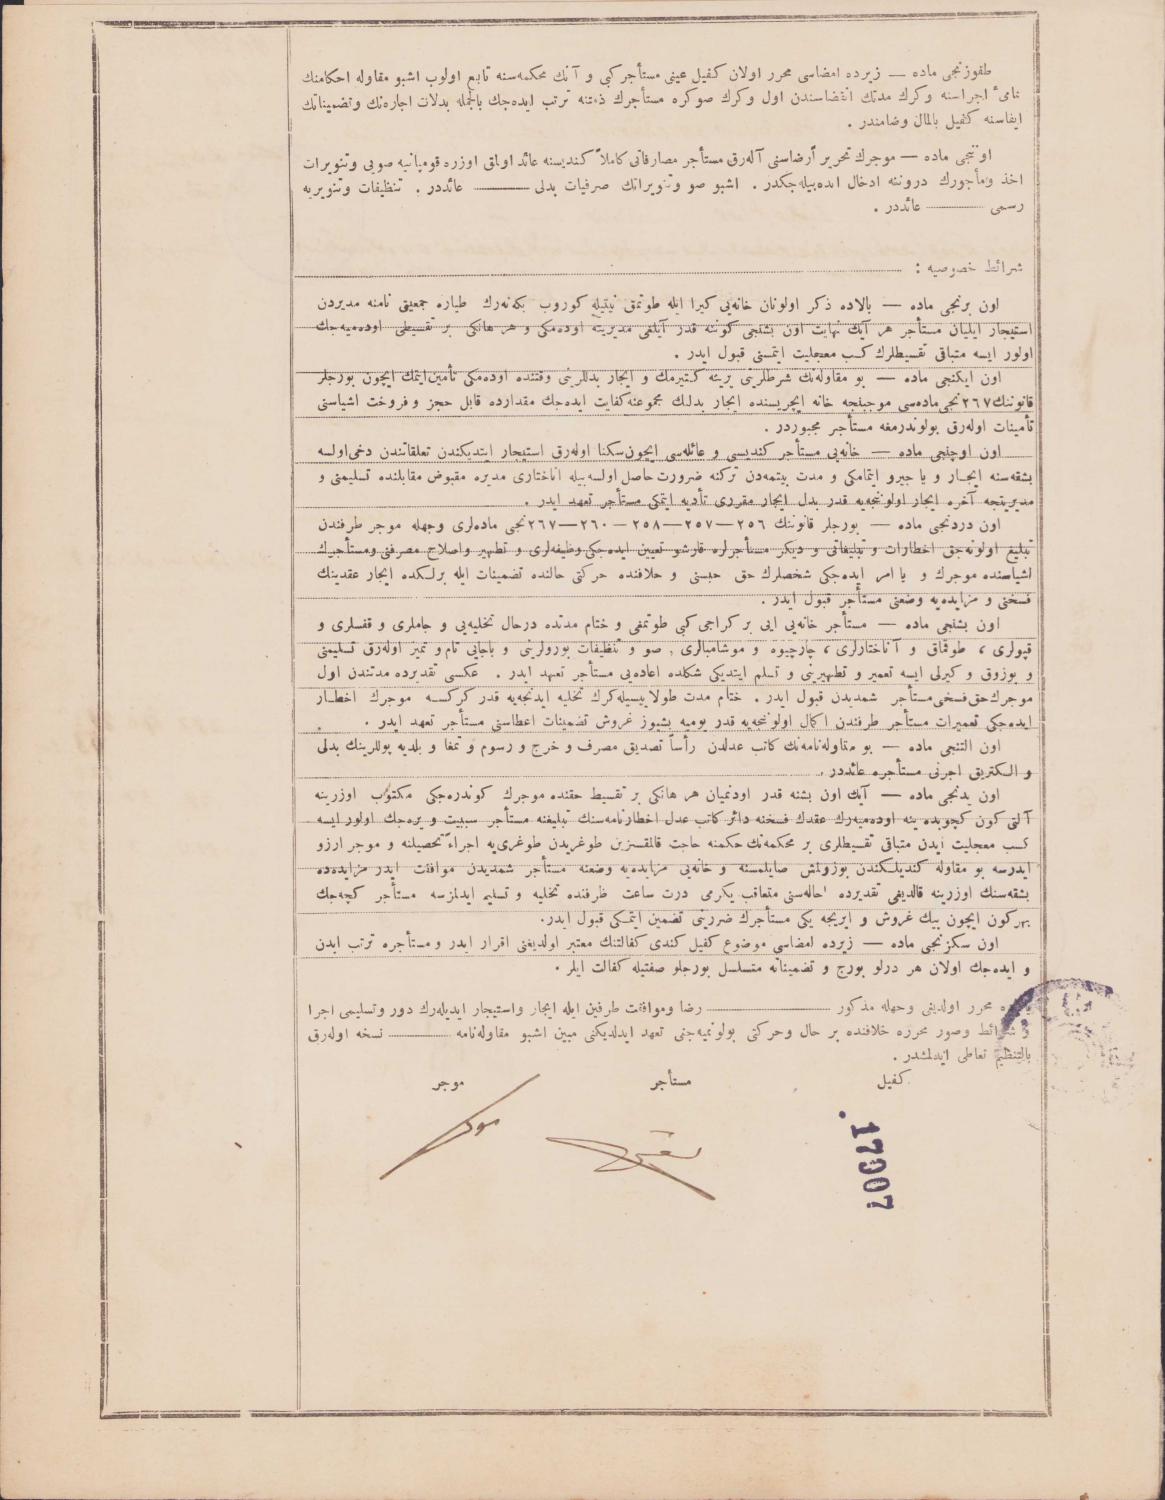 طقوزنجی ماده — زیرده امضاسی محرر اولان کفیل عینی مستأجر کبی و آنك محکمه‌سنه تابع اولوب اشبو مقاوله احکامنك
تمامیٔ اجراسنه وکرك مدتك انقضاسندن اول وکرك صوکره مستأجرك ذمتنه ترتب ایده‌جك بالجمله بدلات اجاره‌نك وتضمیناتك
ایفاسنه کفیل بالمال وضامندر .
اوننجی ماده — موجرك تحریر اً رضاسنی آله‌رق مستأجر مصارفاتی کاملاً کندیسنه عائد اولمق اوزره قومپانیه صویی وتنویرات
اخذ ومأجورك دروننه ادخال ایده‌بیله‌جکدر . اشبو صو وتنویراتك صرفیات بدلی ——— عائددر . تنظیفات وتنویریه
رسمی ——— عائددر .
شرائط خصوصیه :
اون برنجی ماده — بالاده ذکر اولونان خانه‌یی کیرا ایله طوتمق نیتیله کوروب بکه‌نه‌رك طیاره جمعیتی نامنه مدیردن
استیجار ایلیان مستأجر هر آیك نهایت اون بشنجی کوننه قدر آیلغی مدیریته اوده‌مکی و هر هانکی بر تقسیطی اوده‌میه‌جك
اولور ایسه متباقی تقسیطلرك کسب معجلیت ایتمسنی قبول ایدر .
اون ایکنجی ماده — بو مقاوله‌نك شرطلرینی یرینه کتیرمك و ایجار بدللرینی وقتنده اوده‌مکی تأمین ایتمك ایچون بورجلر
قانوننك ٢٦٧ نجی ماده‌سی موجبنجه خانه ایچریسنده ایجار بدلك مجموعنه کفایت ایده‌جك مقدارده قابل حجز و فروخت اشیاسنی
تأمینات اوله‌رق بولوندرمغه مستأجر مجبوردر .
اون اوچنجی ماده — خانه‌یی مستأجر کندیسی و عائله‌سی ایچون سکنا اوله‌رق استیجار ایتدیکندن تعلقاتندن دخی اولسه
بشقه‌سنه ایجار و یا جیرو ایتمامکی و مدت بیتمه‌دن ترکنه ضرورت حاصل اولسه بیله اناختاری مدیره مقبوض مقابلنده تسلیمنی و
مدیریتجه آخره ایجار اولوننجه‌یه قدر بدل ایجار مقرری تأدیه ایتمکی مستأجر تعهد ایدر .
اون دردنجی ماده — بورجلر قانوننك ٢٥٦—٢٥٧—٢٥٨—٢٦٠—٢٦٧ نجی ماده‌لری وجهله موجر طرفندن
تبلیغ اولونه‌جق اخطارات و تبلیغاتی و دیکر مستأجرلره قارشو تعیین ایده‌جکی وظیفه‌لری و تطهیر واصلاح مصرفنی ومستأجرك
اشیاسنده موجرك و یا امر ایده‌جکی شخصلرك حق حبسنی و خلافنده حرکتی حالنده تضمینات ایله برلکده ایجار عقدینك
فسخنی و مزایده‌یه وضعنی مستأجر قبول ایدر .
اون بشنجی ماده — مستأجر خانه‌یی ایی بر کراجی کبی طوتمغی و ختام مدتده درحال تخلیه‌یی و جاملری و قفسلری و
قپولری ، طوقماق و آناختارلری ، چارچیوه و موشامبالری , صو و تنظیفات بورولرینی و باجایی تام و تمیز اوله‌رق تسلیمنی
و بوزوق و کیرلی ایسه تعمیر و تطهیرینی و تسلم ایتدیکی شکلده اعاده‌یی مستأجر تعهد ایدر . عکسی تقدیرده مدتندن اول
موجرك حق فسخی مستأجر شمدیدن قبول ایدر . ختام مدت طولاییسیله کرك تخلیه ایدنجه‌یه قدر کرکسه موجرك اخطار
ایده‌جکی تعمیرات مستأجر طرفندن اکمال اولوننجه‌یه قدر یومیه بشیوز غروش تضمینات اعطاسنی مستأجر تعهد ایدر .
اون التنجی ماده — بو مقاوله‌نامه‌نك کاتب عدلدن رأساً تصدیق مصرف و خرج و رسوم و تمغا و بلدیه پوللرینك بدلی
و الکتریق اجرتی مستأجره عائددر .
اون یدنجی ماده — آیك اون بشنه قدر اودنمیان هر هانکی بر تقسیط حقنده موجرك کوندره‌جکی مکتوب اوزرینه
آلتی کون کچوبده ینه اوده‌میه‌رك عقدك فسخنه دائر کاتب عدل اخطارنامه‌سنك تبلیغنه مستأجر سببیت ویره‌جك اولور ایسه
کسب معجلیت ایدن متباقی تقسیطلری بر محکمه‌نك حکمنه حاجت قالمقسزین طوغریدن طوغری‌یه اجراءً تحصیلنه و موجر ارزو
ایدرسه بو مقاوله کندیلکندن بوزولمش صایلمسنه و خانه‌یی مزایده‌یه وضعنه مستأجر شمدیدن موافقت ایدر مزایده‌ده
بشقه‌سنك اوزرینه قالدیغی تقدیرده احاله‌سنی متعاقب یکرمی درت ساعت ظرفنده تخلیه و تسلیم ایدلمزسه مستأجر کچه‌جك
بهرکون ایچون بیك غروش و ایریجه یکی مستأجرك ضررینی تضمین ایتمکی قبول ایدر.
اون سکزنجی ماده — زیرده امضاسی موضوع کفیل کندی کفالتنك معتبر اولدیغنی اقرار ایدر و مستأجره ترتب ایدن
و ایده‌جك اولان هر درلو بورج و تضمیناته متسلسل بورجلو صفتیله کفالت ایلر .
محرر اولدیغی وجهله مذکور ——— رضا وموافقت طرفین ایله ایجار واستیجار ایدیله‌رك دور وتسلیمی اجرا
و شرائط وصور محرره خلافنده بر حال وحرکتی بولونمیه‌جغنی تعهد ایدلدیکنی مبین اشبو مقاوله‌نامه ——— نسخه اوله‌رق
بالتنظیم تعاطی ایدلمشدر .
کفیل مستأجر موجر
17907